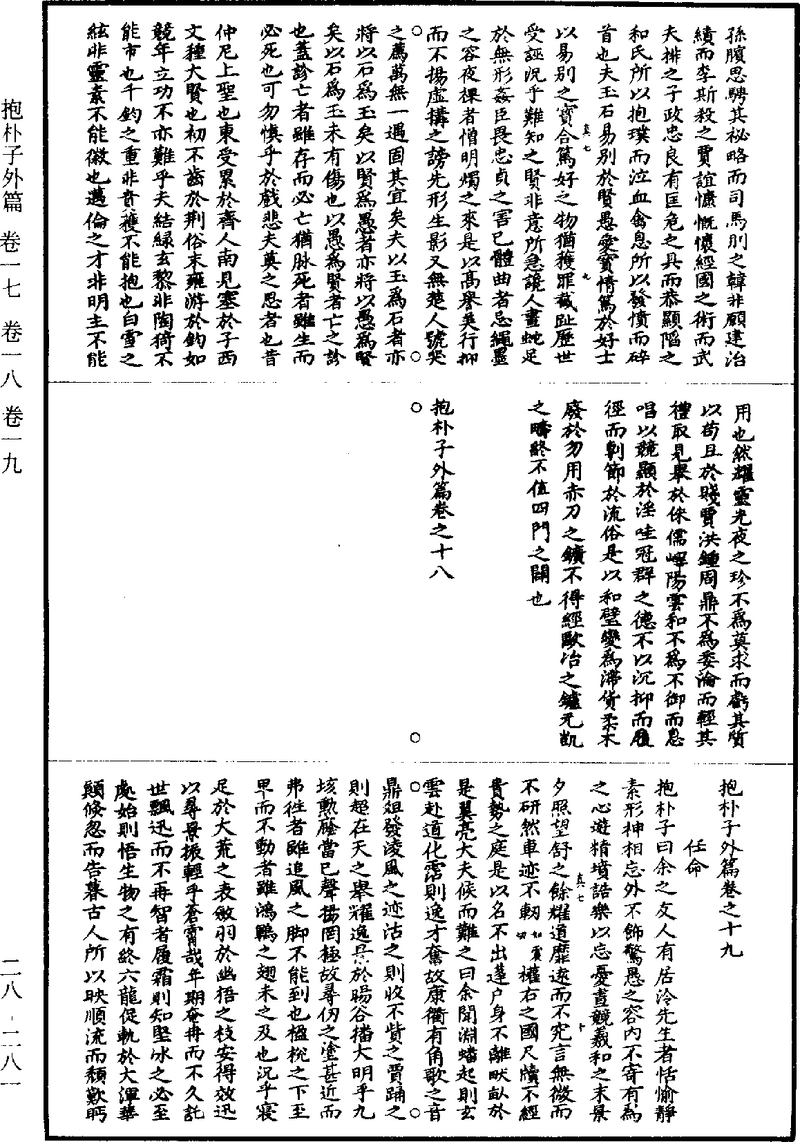 孫臏思騁其秘略而司馬刖之韓非願建治
績而李斯殺之賈誼慷慨懷經國之術而武
夫排之子政忠良有匡危之具而恭顯陷之
和氏所以抱璞而泣血禽息所以發憤而碎
首也夫玉石易別於賢愚愛寶情篤於好士
真七 九
以易別之寶合篤好之物猶獲罪截趾歷世
受誣況乎難知之賢非意所急讒人畫蛇足
於無形姦臣畏忠貞之害己體曲者忌繩墨
之容夜裸者憎明燭之來是以高舉美行抑
而不揚虛構之謗先形生影又無楚人號哭
之薦萬無一遇固其宜矣夫以玉爲石者亦
將以石爲玉矣以賢爲愚者亦將以愚爲賢
矣以石爲玉未有傷也以愚爲賢者亡之診
也蓋診亡者雖存而必亡猶脉死者雖生而
必死也可勿慎乎於戲悲夫莫之思者也昔
仲尼上聖也東受累於齊人南見塞於子西
文種大賢也初不齒於荊俗末雍游於鈞如
競年立功不亦難乎夫結綠玄黎非陶猗不
能市也千鈞之重非賁獲不能抱也白雪之
絃非靈素不能徽也邁倫之才非明主不能
用也然耀靈光夜之珍不爲莫求而虧其質
以苟且於賤賈洪鍾周鼎不爲委淪而輕其
禮取見舉於侏儒嶧陽雲和不爲不御而息
唱以競顯於淫哇冠群之德不以沉抑而履
徑而剸節於流俗是以和璧變爲滯貨柔木
廢於勿用赤刀之鑛不得經歐冶之鑪元凱
之疇終不值四門之闢也
抱朴子外篇卷之十八
抱朴子外篇卷之十九
任命
抱朴子曰余之友人有居泠先生者恬愉靜
素形神相忘外不飾驚愚之容內不寄有爲
之心遊精墳誥樂以忘憂晝競羲和之末景
真七 十
夕照望舒之餘耀道靡遠而不究言無微而
不研然車迹不軔如震切權右之國尺牘不經
貴勢之庭是以名不出蓬户身不離畎畝於
是翼亮大夫候而難之曰余聞淵蟠起則玄
雲赴道化霑則逸才奮故康衢有角歌之音
鼎俎發凌風之迹沽之則收不貲之賈踊之
則超在天之舉耀逸景於暘谷播大明乎九
垓勲廕當已聲揚罔極故尋仞之塗甚近而
弗往者雖追風之脚不能到也楹棁之下至
卑而不動者雖鴻鶤之翅未之及也沉乎寢
足於大荒之表斂羽於幽梧之枝安得效迅
以尋景振輕乎蒼霄哉年期奄冉而不久託
世飄迅而不再智者履霜則知堅冰之必至
處始則悟生物之有終六龍促軌於大渾華
顛倏忽而告暮古人所以映順流而頹歎眄
抱朴子外篇 卷一七 卷一八 卷一九
二八-二八一